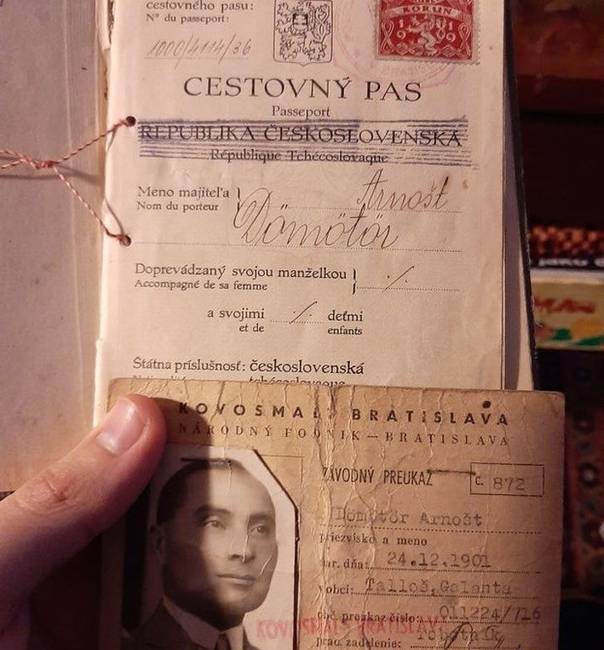 cestovného pasu:
N° du passeport:
1000/4114/36
KORUN
CESTOVNÝ PAS
Passeport
REPUBLIKA ČESKOSLOVENSKÁ
République Tchécoslovaque
Meno majiteľa
Nom du porteur
Arnošt
Dömötör
Doprevádzaný svojou manželkou
Accompagné de sa femme
a svojimi deťmi
et de enfants
Štátna príslušnosť: československá
tchécoslovaque
KOVOSMALT BRATISLAVA
NÁRODNÝ PODNIK—BRATISLAVA
ZÁVODNÝ PREUKAZ
č. 872
Dömötör Arnošt
priezvisko a meno
nar. dňa: 24.12.1901
v obci: Talloš, Galanta
obč. preukaz číslo: 011224/716
KOVOSMALT BRATISLAVA
prac. zaradenie: robotník